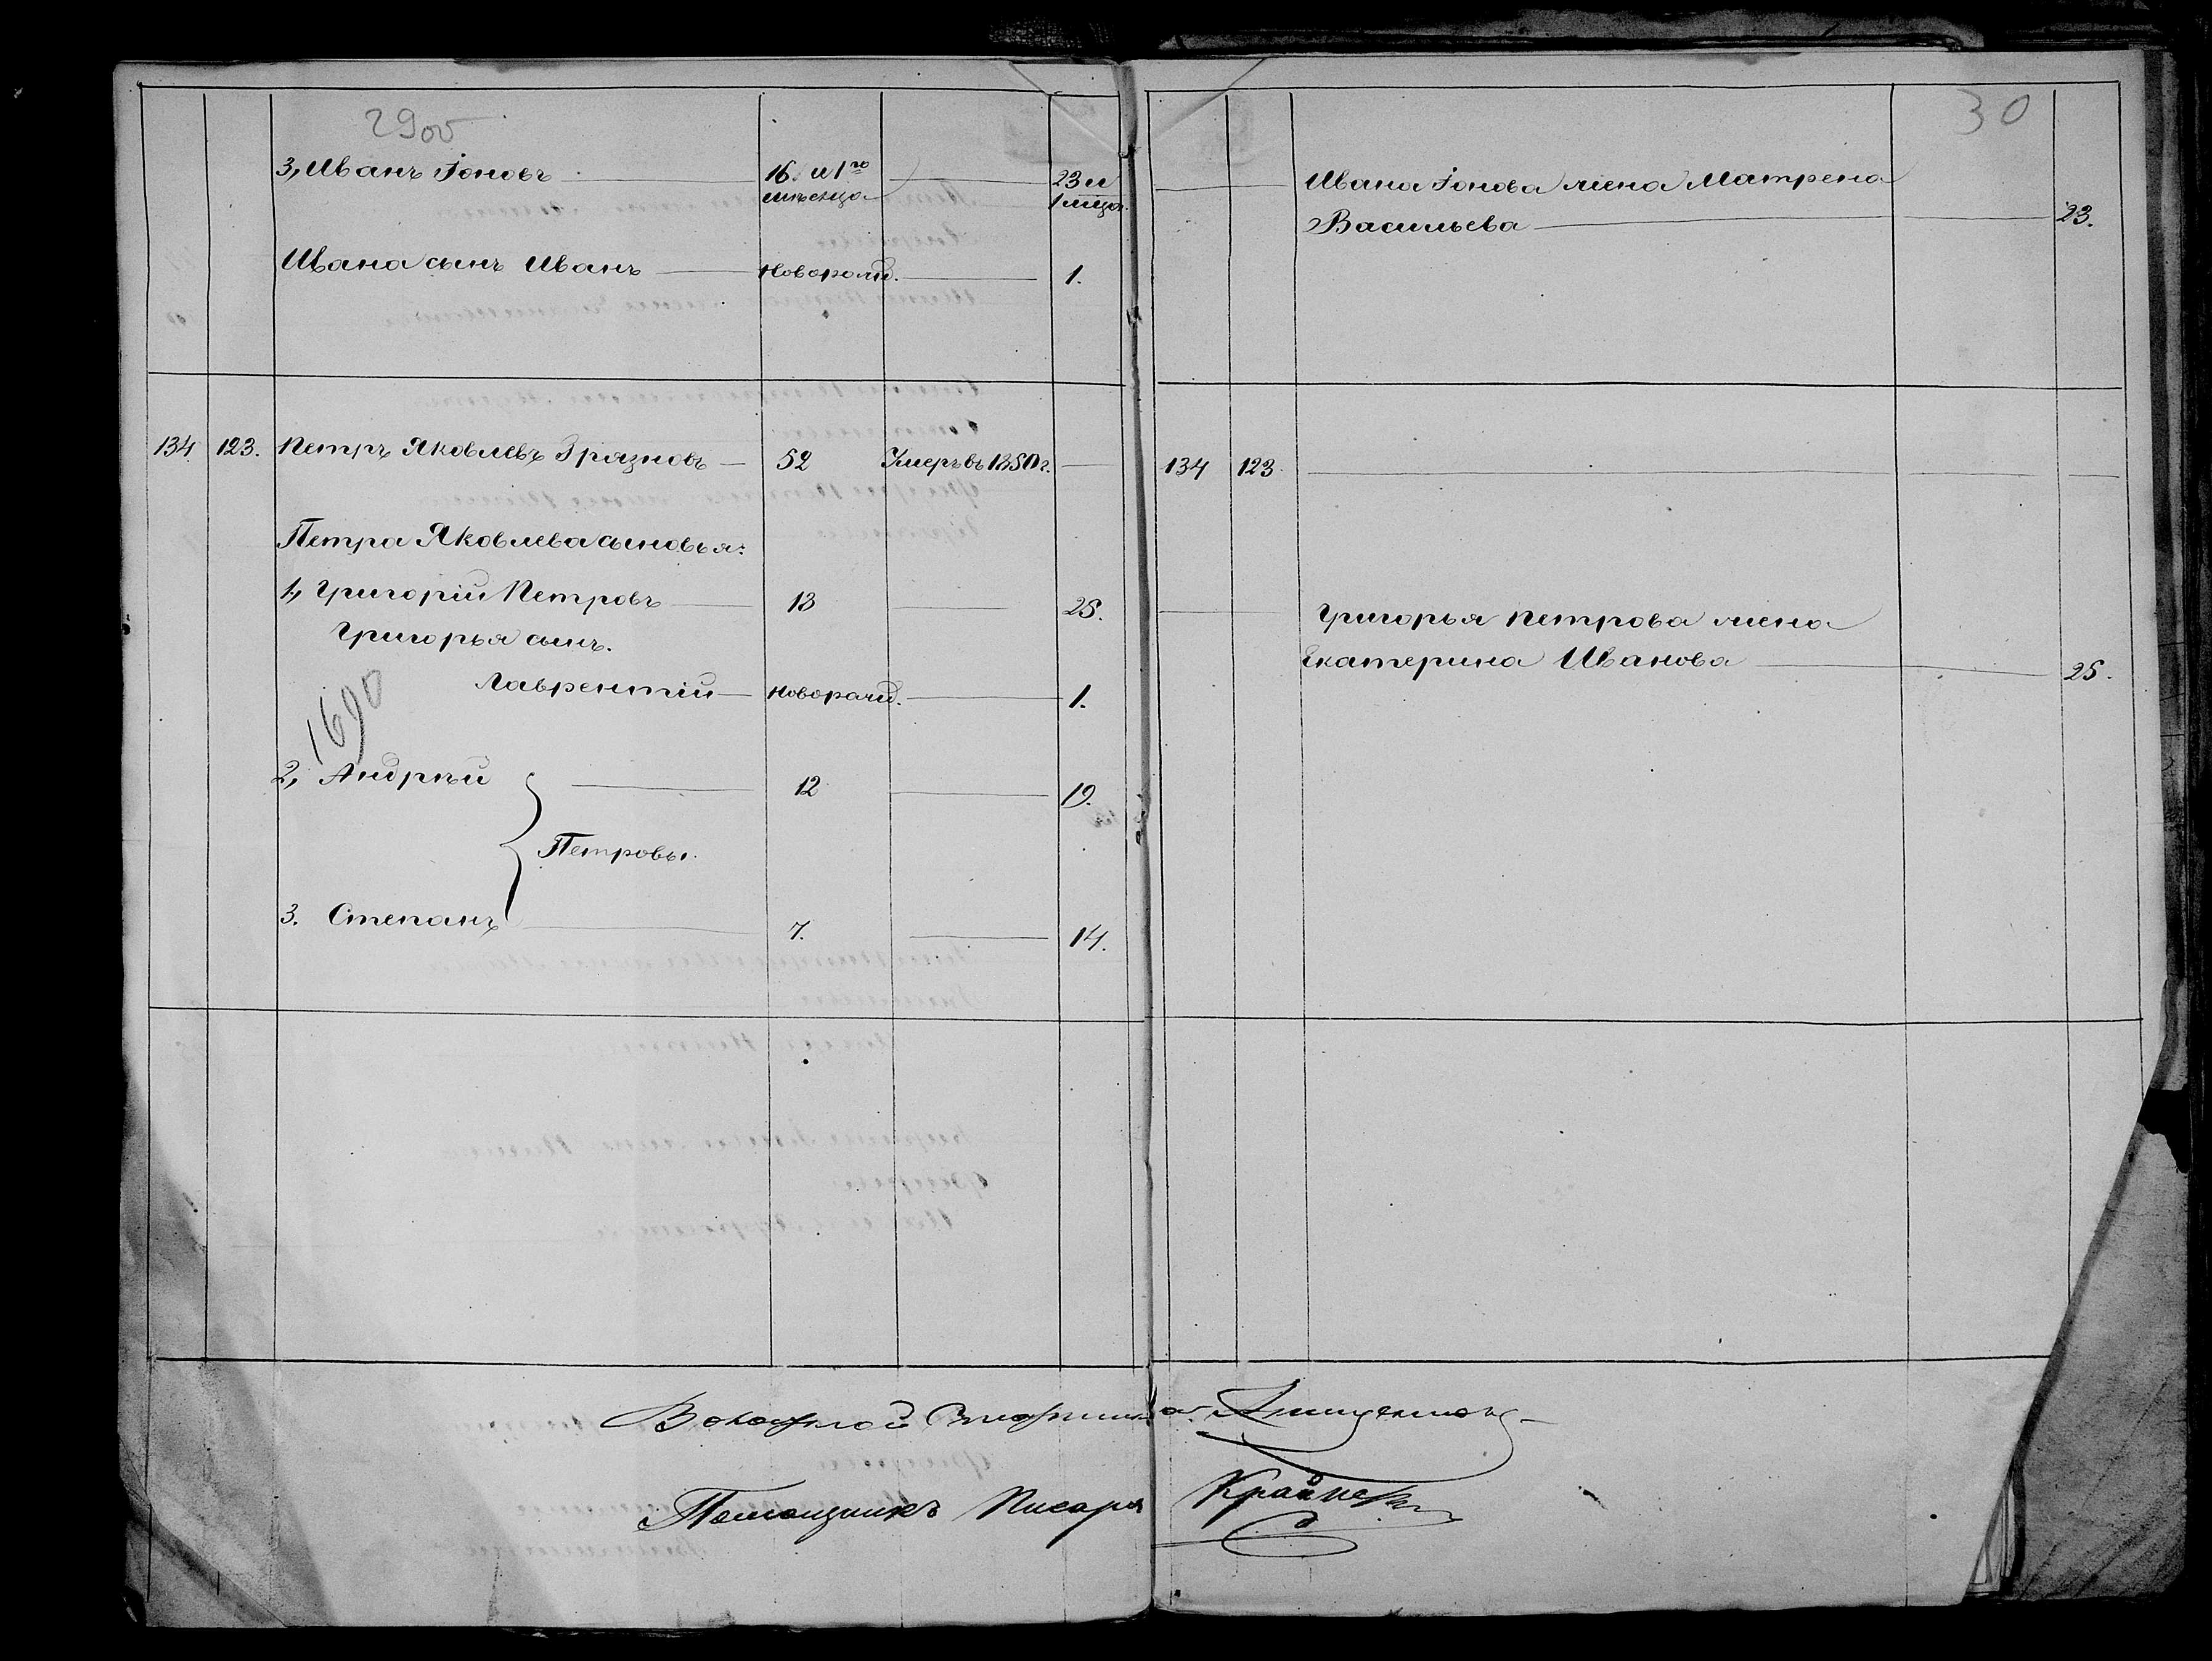 29об
3, Иванъ Іоновъ 16. и 1го 23 и
мѣсяца 1 мѣца.
Ивана сынъ Иванъ Новорожд. 1.
134. 123. Петръ Яковлевъ Грязновъ 52 Умеръ въ 1850 г.
Петра Яковлева сыновья:
1, Григорій Петровъ 13 25.
Григорья сынъ.
Лаврентій Новорожд. 1.
1690
2, Андрѣй 12 19.
Петровы.
3. Степанъ 7. 14.
30
Ивана Іонова жена Матрена
Васильева 23.
134 123
Григорья Петрова жена
Екатерина Иванова 25.
Волостной Старшина
Помощникъ Писаря